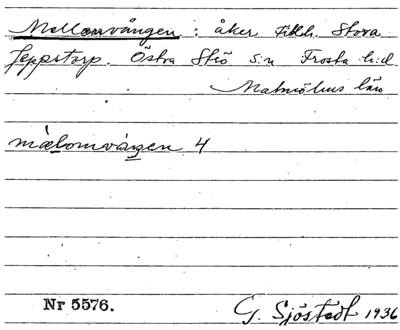 Mellomvången : åker tillh. Stora
Jeppstorp. Östra Strö s:n Frosta h:d
Malmöhus län
mæ̀lomváŋen 4
Nr 5576.
G. Sjöstedt 1936